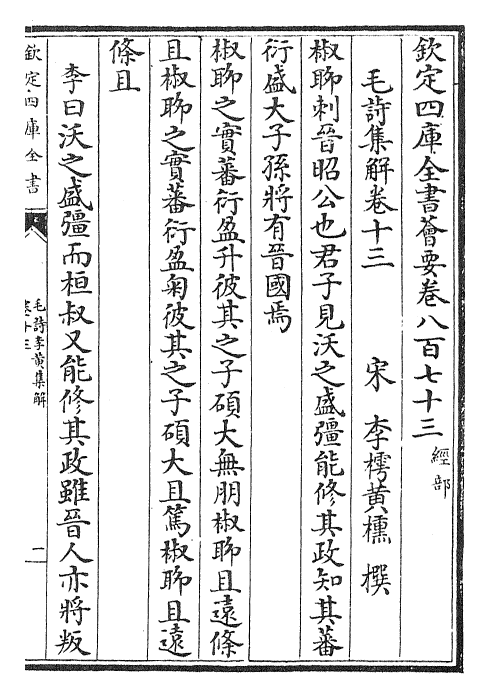 欽定四庫全書薈要卷八百七十三 經部
毛詩集解卷十三 宋 李樗黃櫄 撰
椒聊刺晉昭公也君子見沃之盛彊能修其政知其蕃
衍盛大子孫將有晉國焉
椒聊之實蕃衍盈升彼其之子碩大無朋椒聊且遠條
且椒聊之實蕃衍盈匊彼其之子碩大且篤椒聊且遠
條且
李曰沃之盛彊而桓叔又能修其政雖晉人亦將叛
欽定四庫全書
毛詩李黃集解
卷十三
二